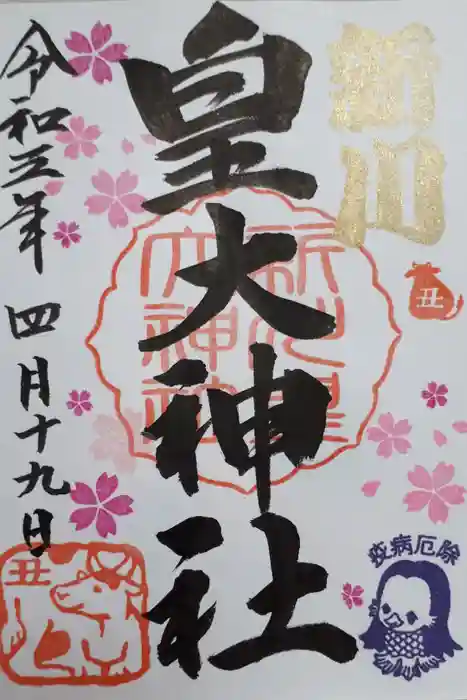 新川
皇大神社
新川皇
大神社
令和三年 四月十九日
丑
丑
疫病厄除